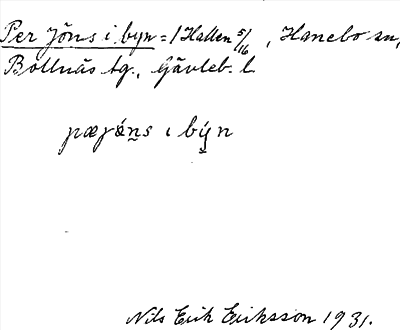 Per Jöns i byn = 1 Hallen 5/16, Hanebo sn,
Bollnäs tg., Gävleb. l
i by̤n
Nils Erik Eriksson 1931.